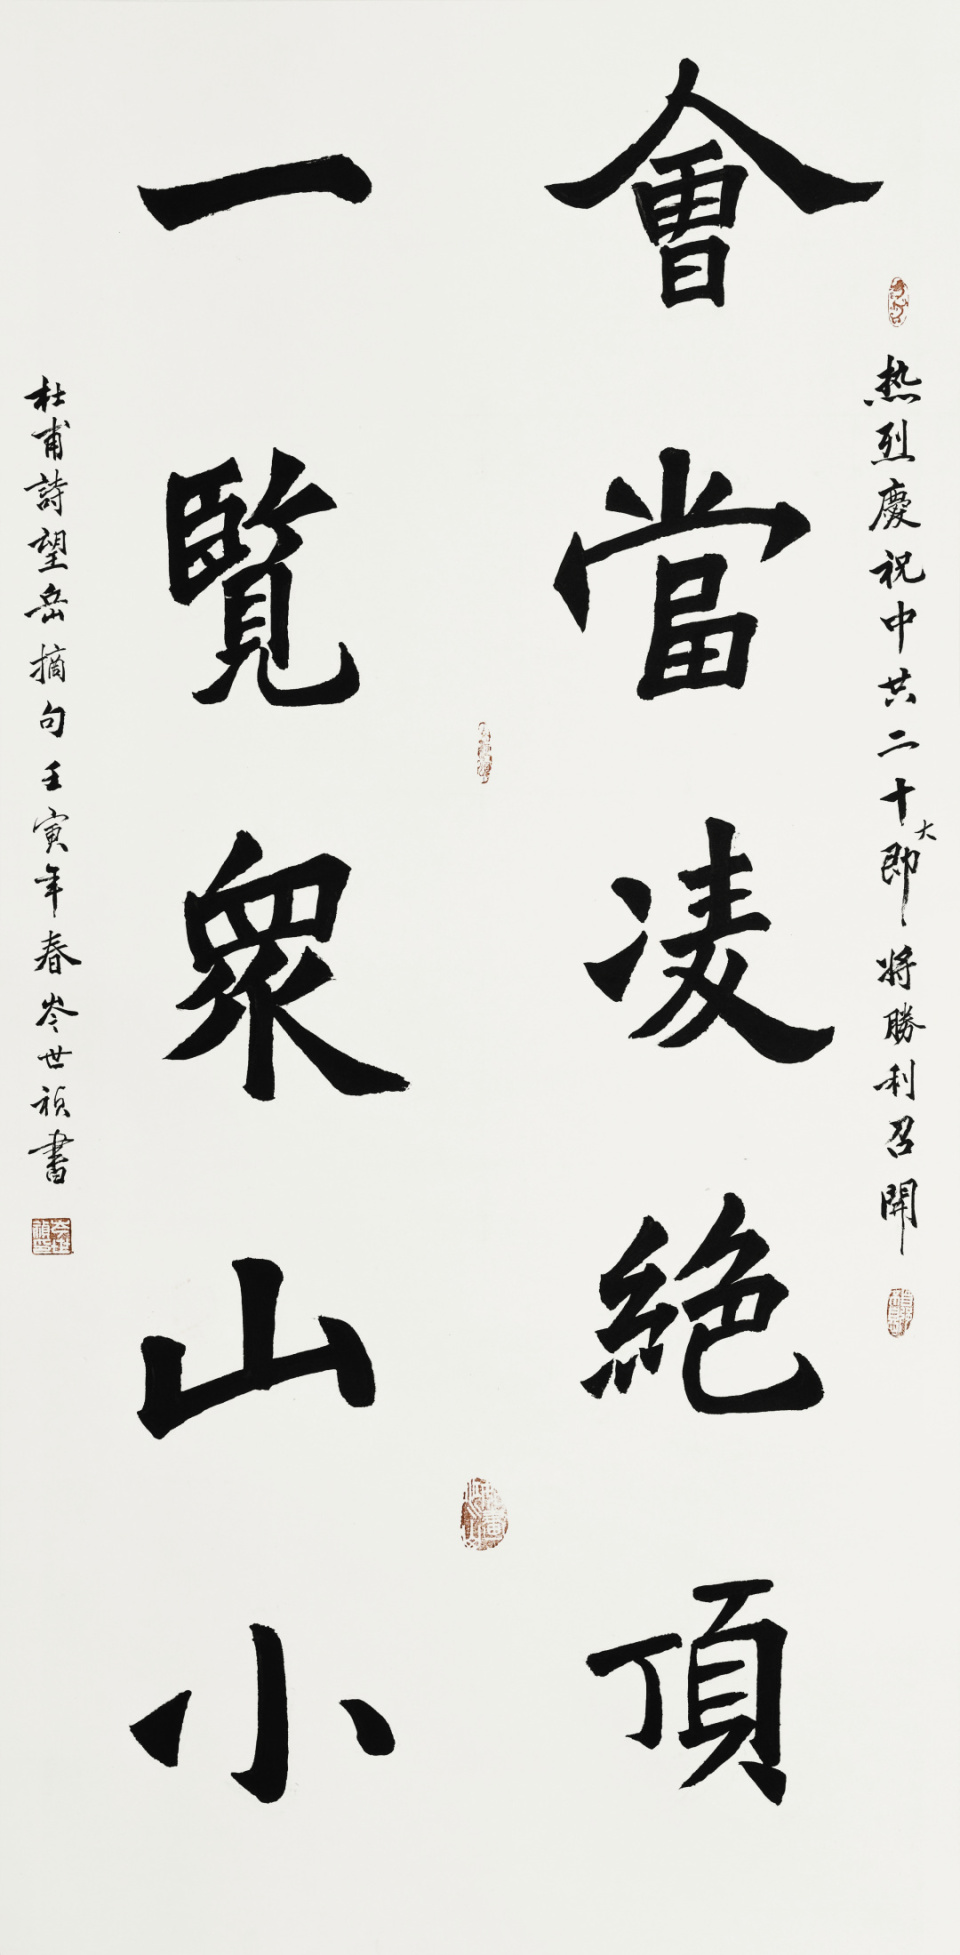 熱烈慶祝中共二十大即将勝利召開
會當凌絕頂
一覽衆山小
杜甫詩望岳摘句壬寅年春岑世禎書